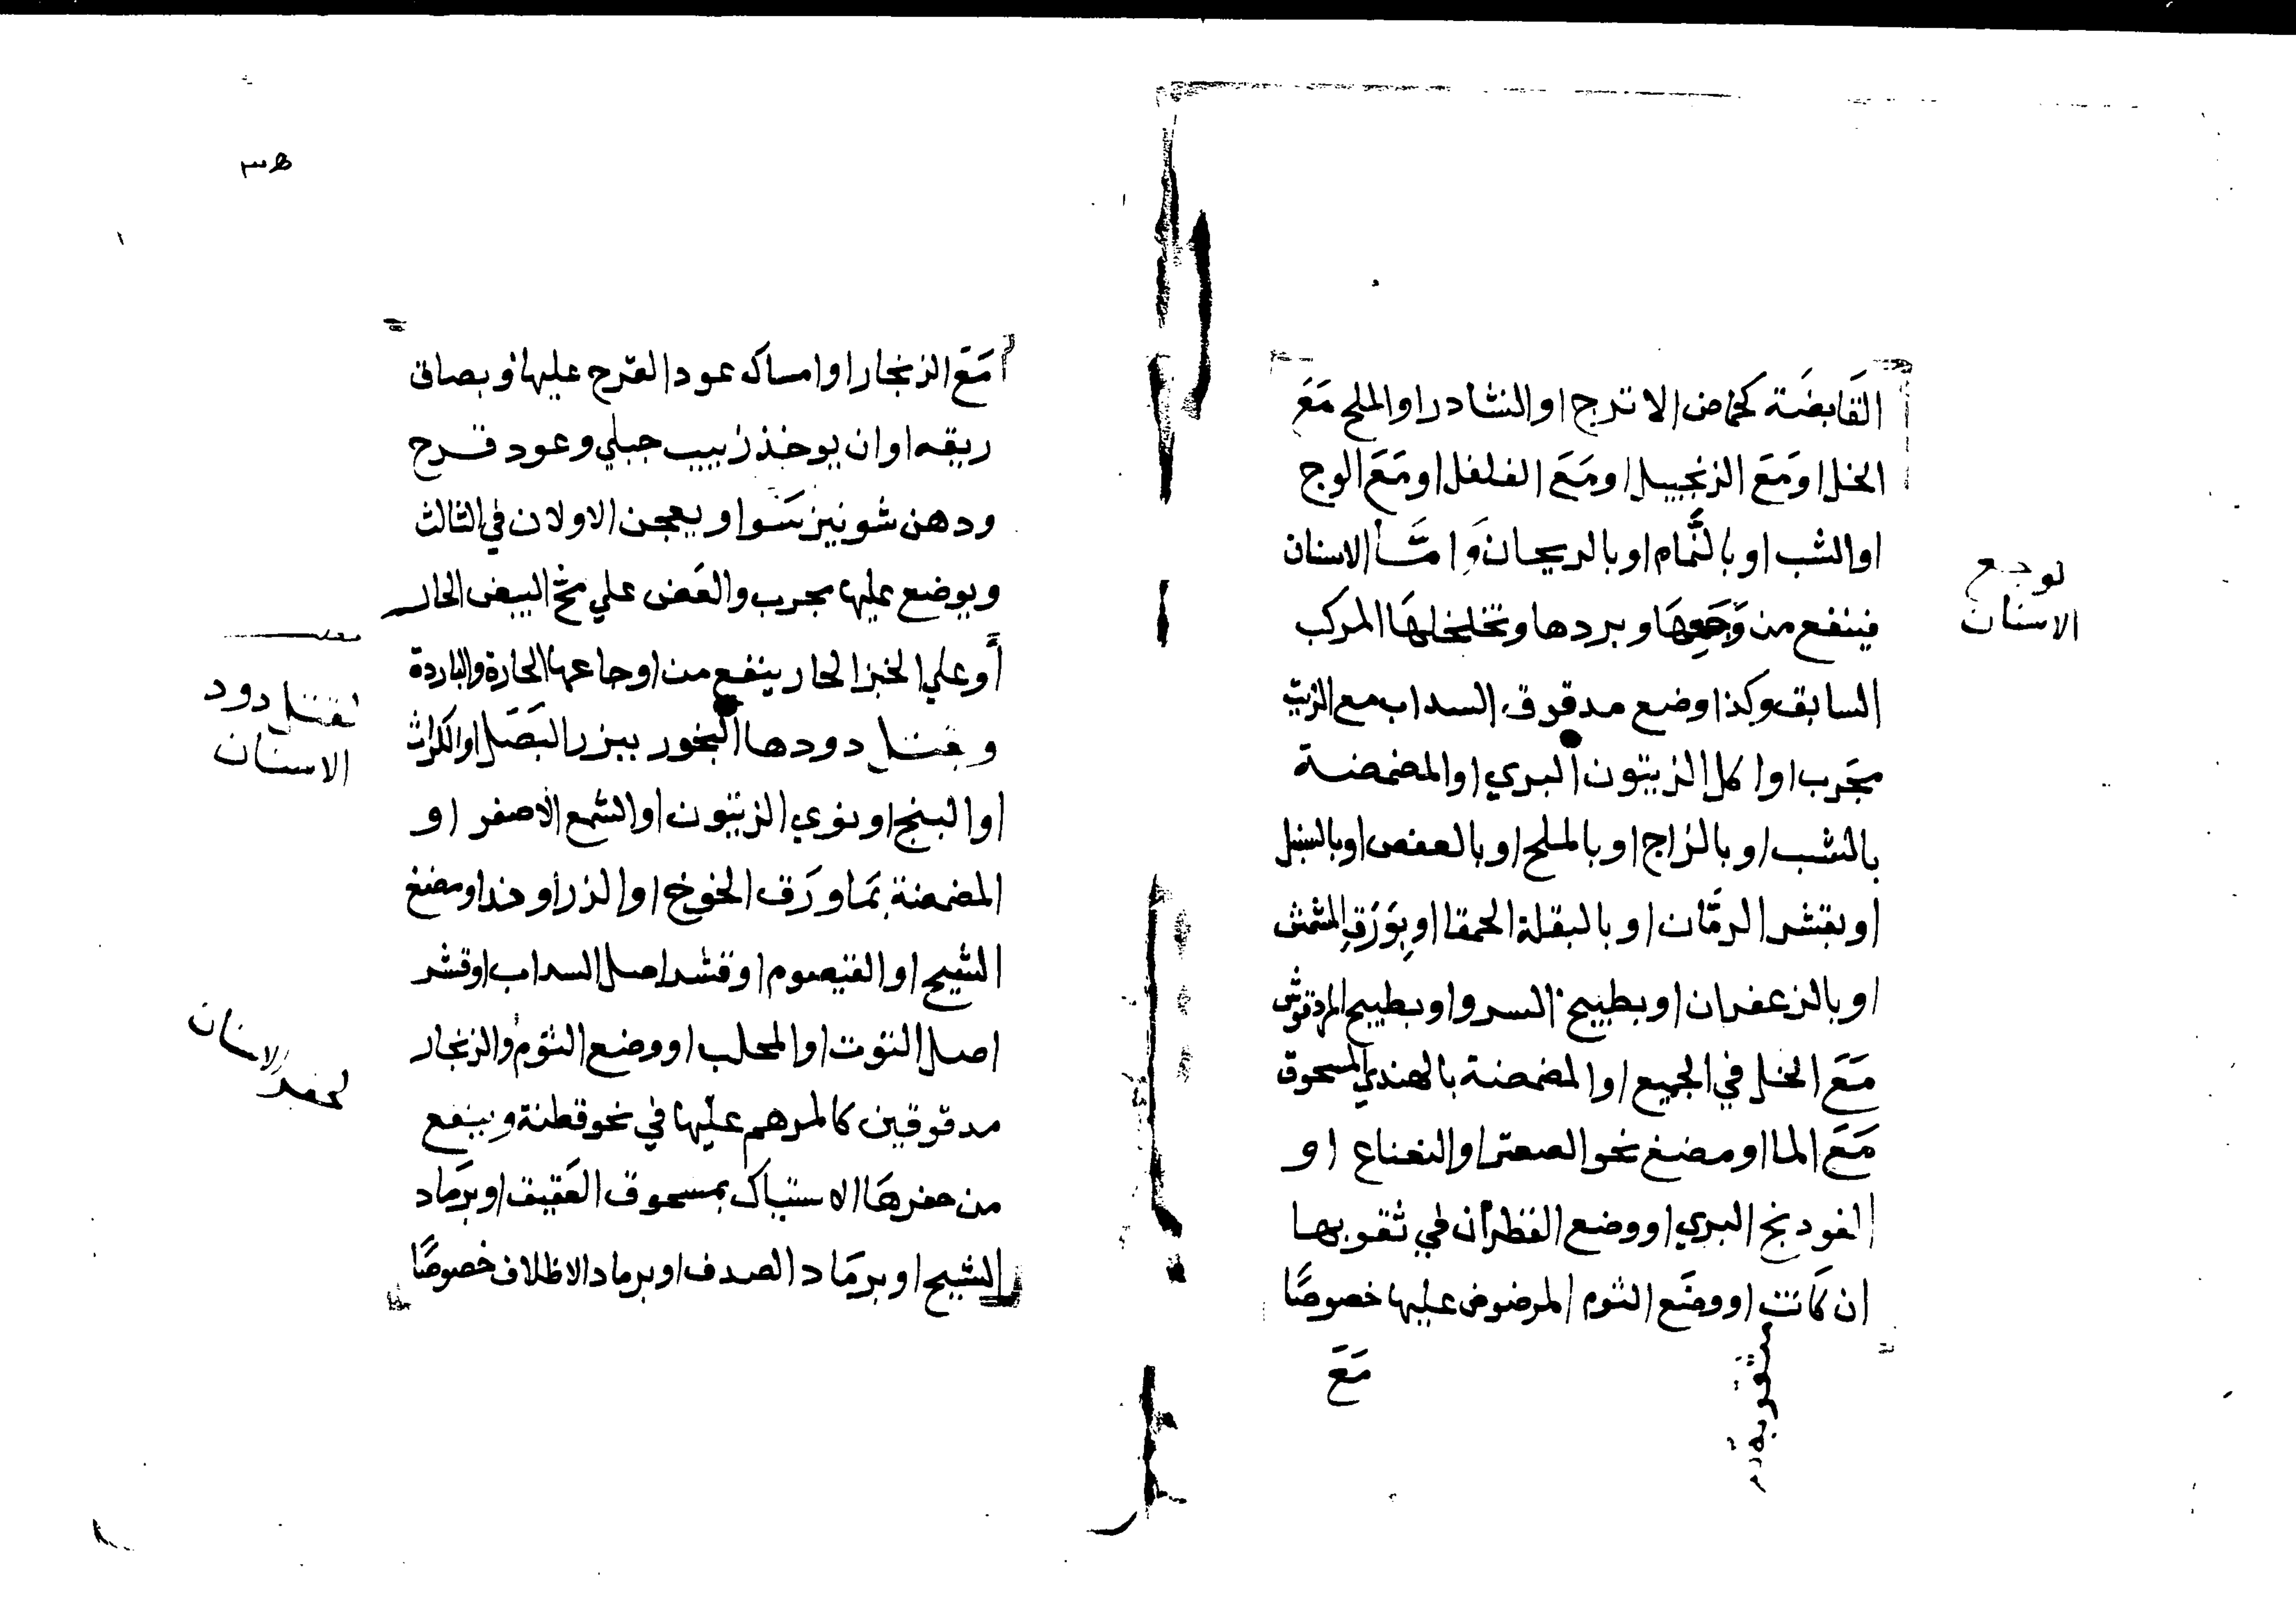 القَابضَة كحماض الاترج او النشادر او الملح مَعَ
الخل او مَعَ الزنجبيل او مَعَ الفلفل او مَعَ الوج
او الشب او بالنَّمام او بالريحان وَامَّا الاسنان
فينفع من وَجَعِهَا وبردها وتخلخلهَا المركب
السابق وكذا وضع مدقوق السداب مع الزيت
مجَرب او اكل الزيتون البري او المضمضة
بالشب او بالزاج او بالملح او بالعفص او بالسنبل
او بقشر الرمَّان او بالبقلة الحمقا او بوَرَقِ المشمش
او بالزعفران او بطبيخ السرو او بطبيخ المردقوش
مَعَ الخل في الجميع او المضمضة بالهندي المسحوق
مَعَ الما او مضغ نحو الصعتر او النعناع او
الفودنج البري او وضع القطران في ثقوبها
ان كَانت او وضَع الثوم المرضوض عليها خصوصًا
مَعَ
مثقوبة
لوجع
الاسنان
٣٥
مَعَ الزنجار او امساك عود القرح عليها وبصاق
ريقه او ان يوخذ زبيب جبلي وعود قرح
ودهن شونيز سَوا ويعجن الاولان في الثالث
ويوضع عليها مجرب والعَض علي مخ البيض الحار
أو علي الخبز الحار ينفع من اوجاعها الحارة والباردة
ويقتل دودها البخور ببزر البَصَل او الكراث
او البنج او نوي الزيتون او الشمع الاصفر او
المضمضة بمَا ورَق الخوخ او الزراوند او مضغ
الشيح او القيصوم او قشر اصل السداب او قشر
اصل التوت او المحلب او وضع الثوم والزنجار
مدقوقين كالمرهم عليها في نحو قطنة وينفع
من حفرهَا الاستياك بمسحوق العَقيق او برَماد
الشيح او برمَاد الصدف او برماد الاظلاف خصوصًا
لقتل دود
الاسنان
لحفر الاسنان